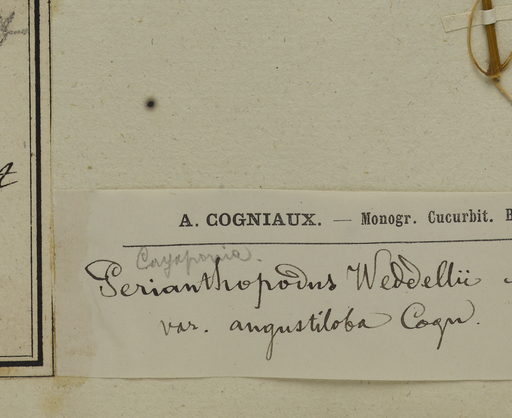 A. COGNIAUX. — Monogr. Cucurbit. B
Cayaponia.
Perianthopodus Weddellii
var. angustiloba Cogn.